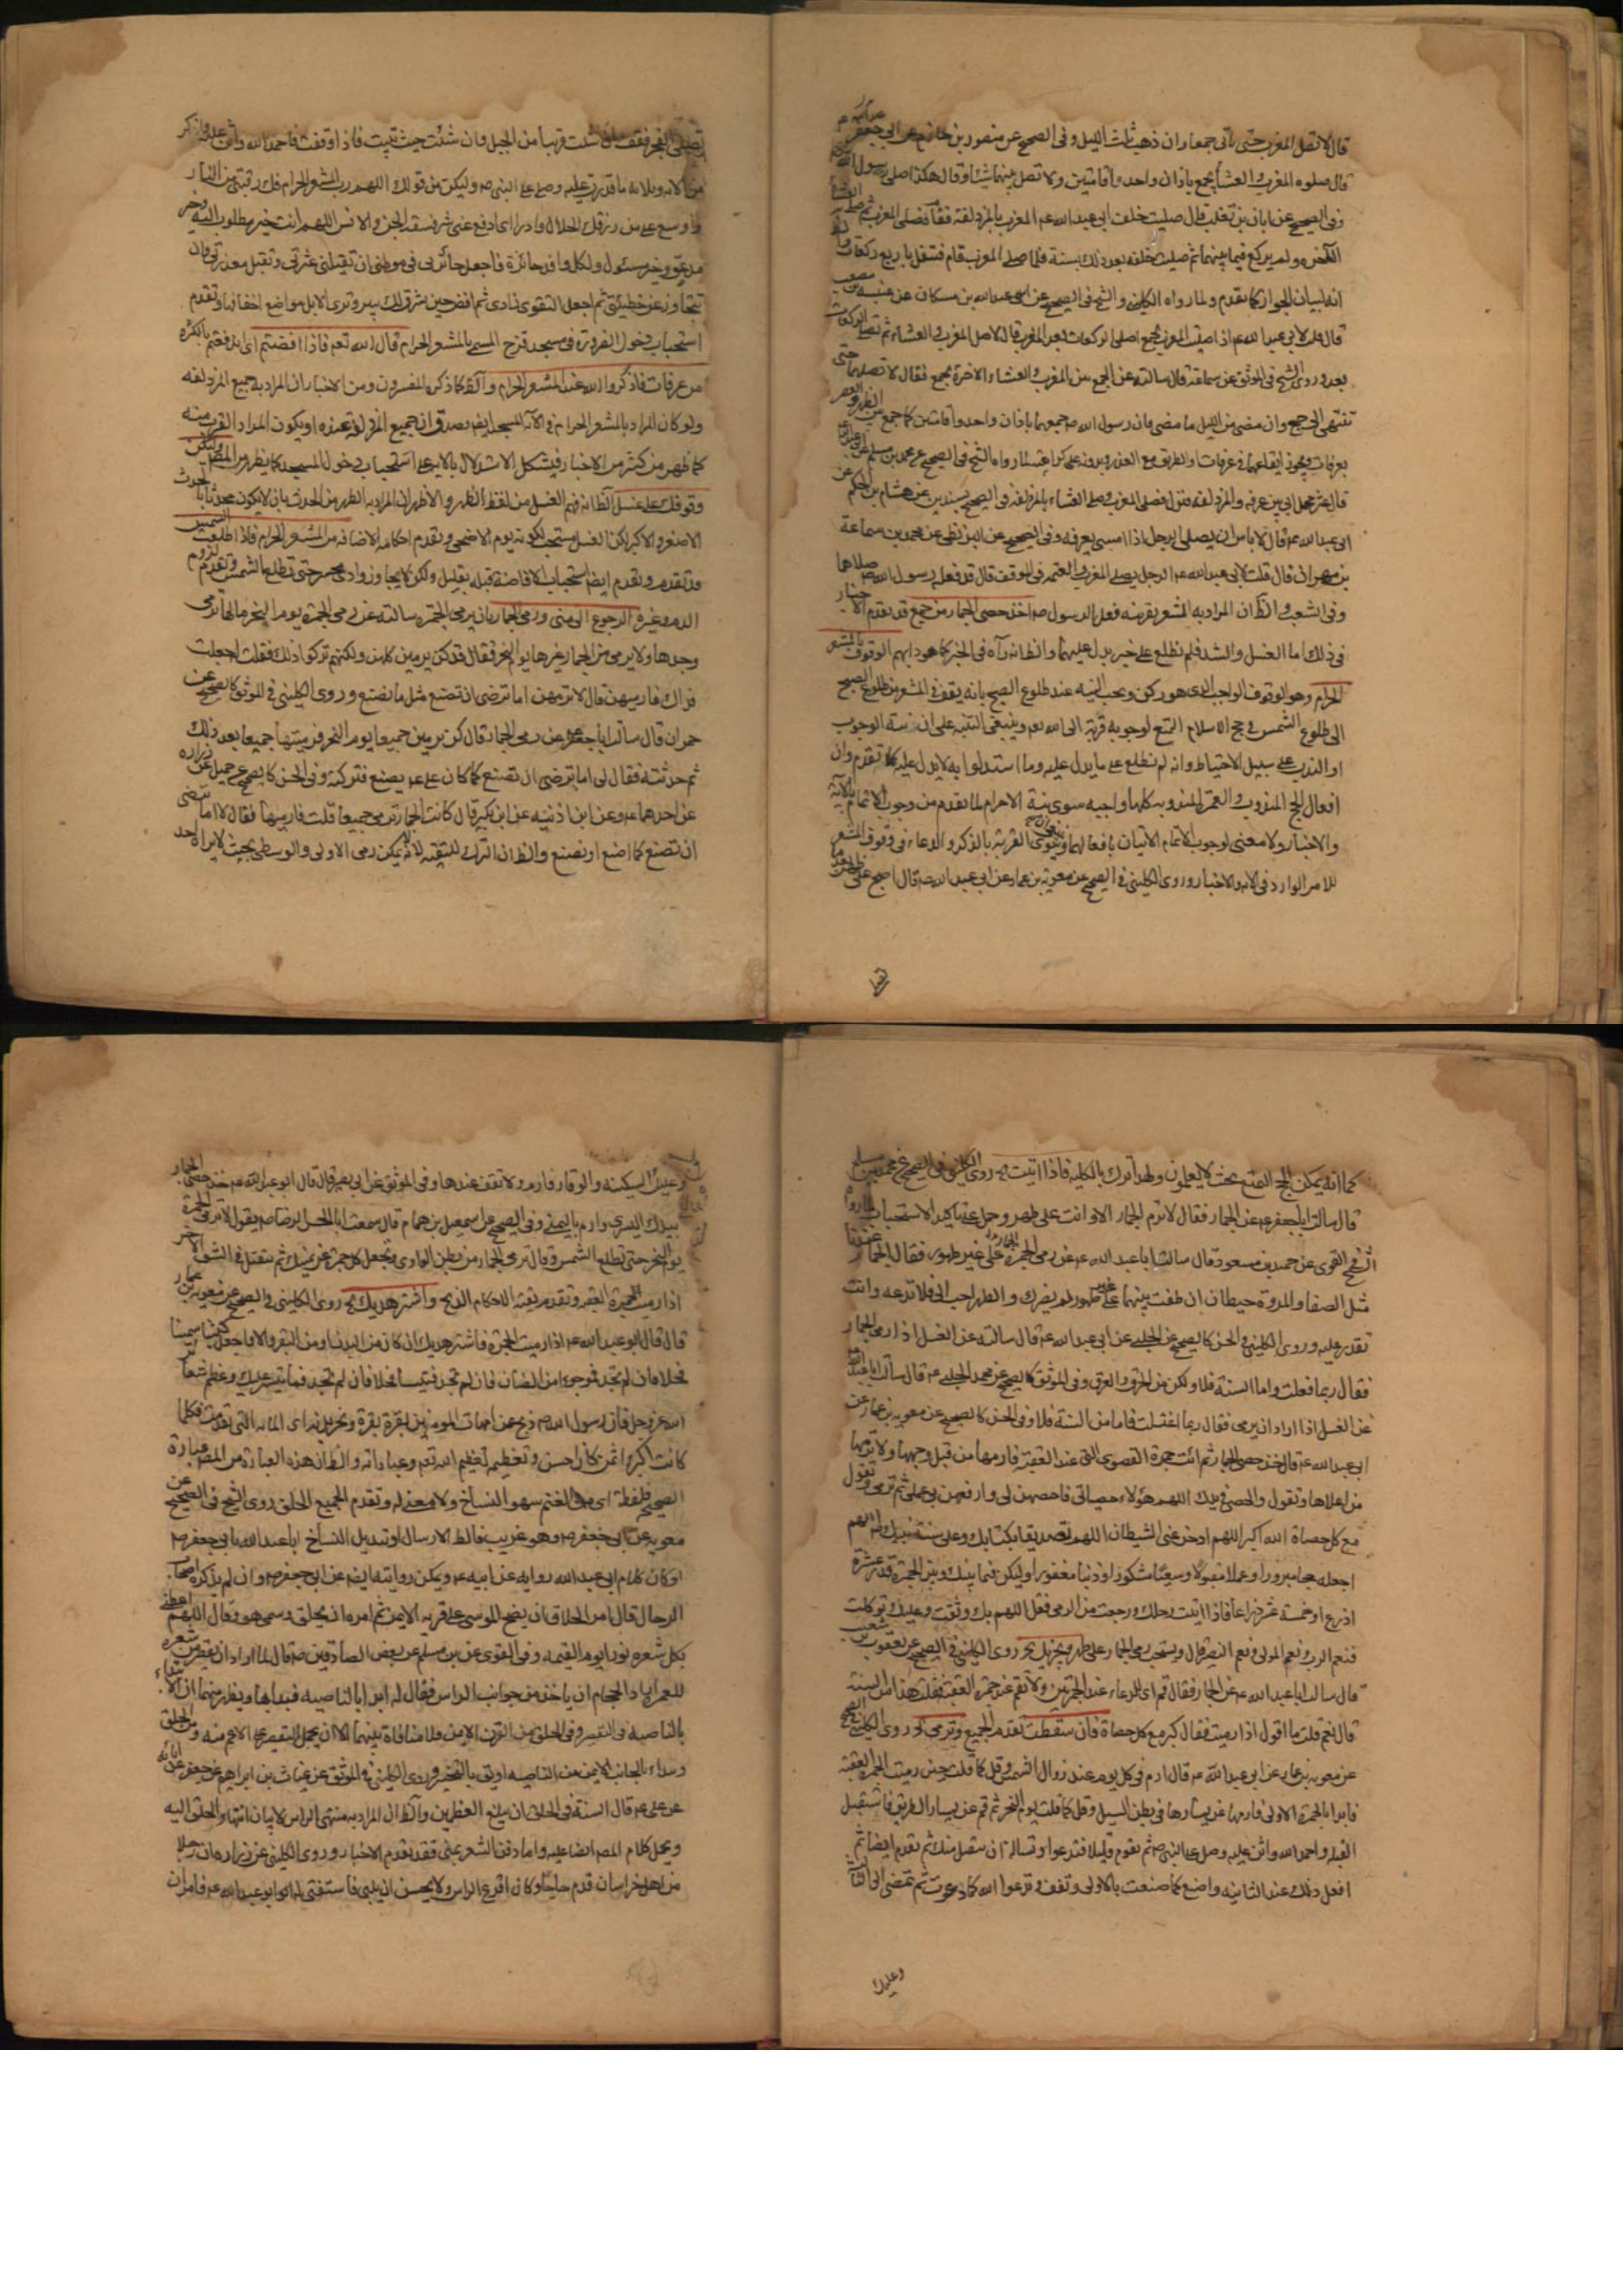 قال لا تصل المغرب حتى تاتى جمعا وان ذهب ثلث الليل وفى الصحيح عن منصور بن حازم عن ابى عبدالله ع
قال صلوه المغرب والعشا بجمع باذان واحد واقامتين ولا تصل بينهما شيئا وقال هكذا صلى رسول الله
وفى الصحيح عن ابان بن تغلب قال صليت خلف ابى عبد الله ع المغرب بالمزدلفة فقام فصلى المغرب ثم صلى العشا
الآخره ولم يركع فيما بينهما ثم صليت خلفه بعد ذلك بسنة فلما صلى المغرب قام فتنفل باربع ركعات
انه لبيان الجواز كما تقدم ولما رواه الكلينى والشيخ فى الصحيح عن عبد الله بن مسكان عن عنبسه بن مصعب
قال قلت لابى عبد الله ع اذا صليت المغرب بجمع اصلى الركعات بعد المغرب قال لا صل المغرب والعشاء ثم تصلى الركعات
بعد وروى الشيخ فى الموثق عن سماعة قال سالته عن الجمع بين المغرب والعشاء الاخرة بجمع فقال لا تصلهما حتى
تنتهى الى جمع وان مضى من الليل ما مضى فان رسول الله ص جمعهما باذان واحد واقامتين كما جمع بين الظهر والعصر
بعرفات ويجوز ايقاعهما فى عرفات والطريق مع العذر وبدونه على كراهته لما رواه الشيخ فى الصحيح عن محمد بن مسلم عن ابى عبد الله
قال عثر محمل ابى بين عرفه والمزدلفه فنزل فصلى المغرب وصلى العشاء بالمزدلفه وفى الصحيح بسندين عن هشام بن الحكم عن
ابى عبد الله ع قال لا باس ان يصلى الرجل اذا امسى بعرفه وفى الصحيح عن محمد بن سماعة
بن مهران قال قلت لابى عبد الله ع الرجل يصلى المغرب والعتمه فى الموقف قال قد فعله رسول الله ص صلاهما
وفى الشعب والظ ان المراد به المشعر بقرينه فعل الرسول ص اخذ حصى الجمار من جمع قد تقدم الاخبار
فى ذلك اما الغسل والشد فلم نطلع على خبر يدل عليهما الوقوف بالمشعر
الحرام وهو الوقوف الواجب الذى هو ركن ويجب النيه عند طلوع الصبح بانه يقف فى المشعر من طلوع الصبح
الى طلوع الشمس فى حج الاسلام التمتع لوجوبه قربة الى الله تعم وينبغى التنبه على ان نية الوجوب
او الندب على سبيل الاحتياط وانه لم نطلع على ما يدل عليه وما استدلوا به لا يدل عليه كما تقدم وان
افعال الحج المندوب والعمرة المندوبه كلها واجبه سوى نية الاحرام لما تقدم من وجوب الاتمام بالآية
والاخبار ولا معنى لوجوب الاتمام الاتيان بافعالهما وينوى القربة بالذكر والدعاء فى وقوف المشعر
للامر الوارد فى الاية والاخبار وروى الكلينى فى الصحيح عن معويه بن عمار عن ابى عبد الله ص قال اصبح على طهر بعد ما
تصلى الفجر فقف ان شئت قريبا من الجبل وان شئت حيث تبيت فاذا وقفت فاحمد الله واثن عليه واذكر
من آلائه وبلائه ما قدرت عليه وصل على النبى ص وليكن من قولك اللهم رب المشعر الحرام فك رقبتى من النار
واوسع على من رزقك الحلال وادرا عنى شر فسقة الجن والانس اللهم انت خير مطلوب اليه وخير
مدعو وخير مسئول ولكل وافد جائزة فاجعل جائزتى فى موطنى ان تقيلنى عثرتى وتقبل معذرتى وان
تتجاوز عن خطيئتى ثم اجعل التقوى زادى ثم افض حين يشرق لك ثبير وترى الابل مواضع اخفافها وتقدم
استحباب دخول الضرورة فى مسجد قزح المسمى بالمشعر الحرام قال الله تعم فاذا افضتم اى اندفعتم بالكثره
من عرفات فاذكروا الله عند المشعر الحرام والظ كما ذكره المفسرون ومن الاخبار ان المراد به جميع المزدلفه
ولو كان المراد بالمشعر الحرام فى الآية المسجد ايضم يصدق ان جميع المزدلفة عنده او يكون المراد القرب منه
كما ظهر من كثير من الاخبار فيشكل الاستدلال بالايه على استحباب دخول المسجد كما يظهر من المصم وليكن
وقوفك على غسل الظ انه فهم الغسل من لفظ الطهر والاظهر ان المراد به الطهر من الحدث بان لا يكون محدثا بالحدث
الاصغر والاكبر لكن الغسل مستحب لكونه يوم الاضحى وتقدم احكام الافاضه من المشعر الحرام فاذا طلعت الشمس
قد تقدم وتقدم ايضم استحباب الافاضة قبله بقليل ولكن لا يجاوز وادى محسر حتى تطلع الشمس وتقدم لزوم
الدم وغيره الرجوع الى منى ورمى الجمار بان يرمى الجمرة سالته عن رمى الجمرة يوم النحر مالها ترمى
وحدها ولا يرمى من الجمار غيرها يوم النحر فقال قد كن يرمين كلهن ولكنهم تركوا ذلك فقلت جعلت
فداك فارميهن قال لا ترمهن اما ترضى ان تصنع مثل ما نصنع وروى الكلينى فى الموثق كالصحيح عن
حمران قال سالت ابا جعفر عن رمى الجمار قال كن يرمين جميعا يوم النحر فرميتها جميعا بعد ذلك
ثم حدثته فقال لى اما ترضى ان تصنع كما كان على ع يصنع فتركته وفى الحسن كالصحيح عن جميل عن زراره
عن احدهما ع وعن ابن اذينه عن ابن بكير قال كانت الجمار ترمى جميعا قلت فارميها فقال لا اما ترضى
ان تصنع كما اصنع او نصنع والظ ان الترك للتقيه لانه يمكن رمى الاولى والوسطى بحيث لا يراه احد
كما انه يمكن الحج التمتع بحيث لا يعلمون ولهذا ترك بالكليه فاذا اتيت الخ روى الكلينى فى الصحيح عن محمد بن مسلم
قال سالت ابا جعفر ع عن الجمار فقال لا ترم الجمار الا وانت على طهر وحمل على تاكيد الاستحباب لما رواه
الشيخ فى القوى عن حميد بن مسعود قال سالت ابا عبد الله ع عن رمى الجمرة على غير طهور فقال الجمار عندنا
مثل الصفا والمروة حيطان ان طفت بينهما على غير طهور لم يضرك والطهر احب الى فلا تدعه وانت
تقدر عليه وروى الكلينى فى الحسن كالصحيح عن الحلبى عن ابى عبد الله ع قال سالته عن الغسل اذا رمى الجمار
فقال ربما فعلت واما السنة فلا ولكن من الحر والعرق وفى الموثق كالصحيح عن محمد الحلبى ع قال سالت ابا عبد الله
عن الغسل اذا اراد ان يرمى فقال ربما اغتسلت فاما من السنة فلا وفى الحسن كالصحيح عن معويه بن عمار عن
ابى عبد الله ع قال خذ حصى الجمار ثم ائت جمرة القصوى التى عند العقبة فارمها من قبل وجهها ولا ترمها
من اعلاها وتقول والحصى فى يدك اللهم هؤلاء حصياتى فاحصهن لى وارفعهن فى عملى ثم ترمى وتقول
مع كل حصاة الله اكبر اللهم ادحر عنى الشيطان اللهم تصديقا بكتابك وعلى سنة نبيك اللهم
اجعله حجا مبرورا وعملا مقبولا وسعيا مشكورا وذنبا مغفورا وليكن فيما بينك وبين الجمرة قدر عشرة
اذرع او خمسة عشر ذراعا فاذا اتيت رحلك ورجعت من الرمى فقل اللهم بك وثقت وعليك توكلت
فنعم الرب ونعم المولى ونعم النصير قال ويستحب رمى الجمار على طهر ويجزيك الخ روى الكلينى فى الصحيح عن يعقوب بن شعيب
قال سالت ابا عبد الله ع عن الجمار فقال قم اى للدعاء عند الجمرتين ولا تقم عند جمرة العقبة فقلت هذا من السنة
قال نعم قلت ما اقول اذا رميت فقال كبر مع كل حصاة فان سقطت تقدم الجميع وترمى الخ روى الكلينى فى الصحيح
عن معويه بن عمار عن ابى عبد الله ع قال ارم فى كل يوم عند زوال الشمس وقل كما قلت حين رميت الجمره العقبة
فابدا بالجمرة الاولى فارمها عن يسارها فى بطن المسيل وقل كما قلت يوم النحر ثم قم عن يسار الطريق فاستقبل
القبله واحمد الله واثن عليه وصل على النبى ص ثم تقوم قليلا فتدعوا وتساله ان يتقبل منك ثم تقدم ايضا ثم
افعل ذلك عند الثانيه واصنع كما صنعت بالاولى وتقف وتدعوا الله كما دعوت ثم تمضى الى الثالثة
وعليك
وعليك السكينه والوقار فارم ولا تقف عندها وفى الموثق عن ابى بصير قال قال ابو عبد الله ع خذ حصى الجمار
بيدك اليسرى وارم باليمنى وفى الصحيح عن اسمعيل بن همام قال سمعت ابا الحسن الرضا ص يقول لا ترمى الجمرة
يوم النحر حتى تطلع الشمس وقال ترمى الجمار من بطن الوادى وتجعل كل جمرة عن يمينك ثم تنفتل فى الشق الآخر
اذا رميت الجمرة العقبه وتقدم بقية الاحكام الذبح واشتر هديك الخ روى الكلينى فى الصحيح عن معويه بن عمار
قال قال ابو عبد الله ع اذا رميت الجمرة فاشتر هديك ان كان من البدن او من البقر والا فاجعل كبشا سمينا
فحلا فان لم تجد فموجوءا من الضان فان لم تجد فتيسا فحلا فان لم تجد فما تيسر عليك وعظم شعائر
الله عز وجل فان رسول الله ص ذبح عن امهات المومنين بقرة بقرة ونحر بدنه اى المائه التى تقدمت فكلما
كانت اكبر واثمن كان احسن وتعظيمه تعظيم الله تعم وعباداته والظ ان هذه العبارة من المصم عبارة
الصحيح فلفظة اى من الغنم سهو النساخ ولا معنى له وتقدم الجميع الحلق روى الشيخ فى الصحيح عن
معويه عن ابى جعفر ص وهو غريب فالظ الارسال او تبديل النساخ ابا عبد الله بابى جعفر ص
او كان كلام ابى عبد الله روايه عن ابيه ع ويمكن روايته ايضم عن ابى جعفر ص وان لم يذكره اصحاب
الرجال قال امر الحلاق ان يضع الموسى على قرنه الايمن ثم امره ان يحلق وسمى هو وقال اللهم اعطنى
بكل شعره نورا يوم القيمه وفى القوى عن بن مسلم عن بعض الصادقين ص قال لما اراد ان يقصر من شعره
للعمرة اراد الحجام ان ياخذ من جوانب الراس فقال له ابدا بالناصيه فبدا بها ويظهر منهما ان الابتداء
بالناصيه فى التقصير وفى الحلق من القرن الايمن فلا منافاة بينهما الا ان يحمل التقصير على الاعم منه ومن الحلق
ويبداء بالجانب الايمن من الناصيه اولى بالتخيير وروى الكلينى فى الموثق عن غياث بن ابراهيم عن جعفر عن ابائه
عن على ع قال السنة فى الحلق ان يبلغ العظمين والظ ان المراد به منتهى الراس لا بيان انتهاء الحلق اليه
ويحمل كلام المصم ايضا عليه واما دفن الشعر بمنى فقد تقدم الاخبار وروى الكلينى عن زراره ان رجلا
من اهل خراسان قدم حاجا وكان اقرع الراس ولا يحسن ان يلبى فاستفتى له ابو عبد الله ع فامر ان